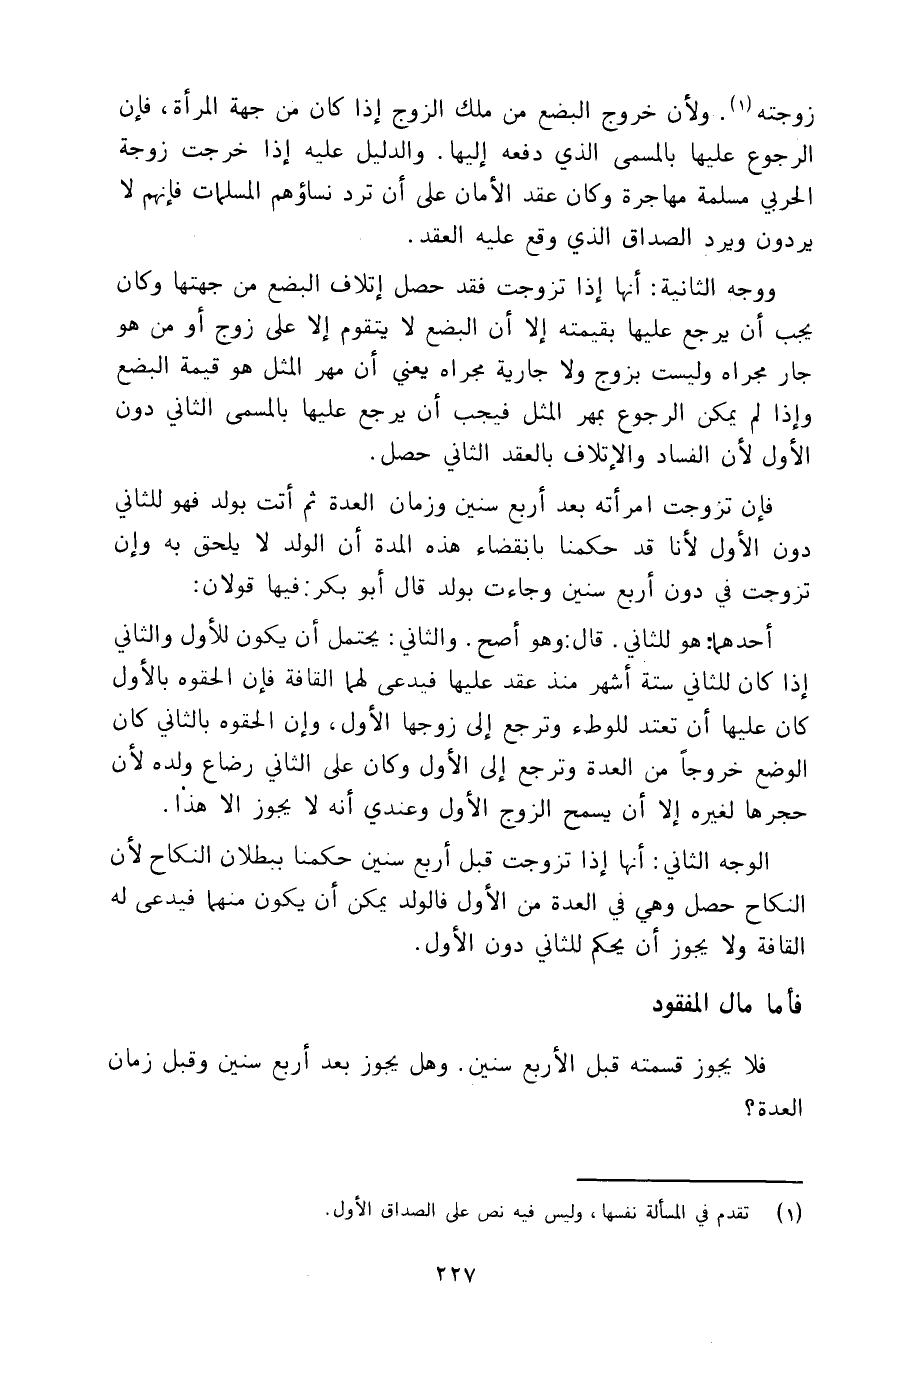 زوجته(١). ولأن خروج البضع من ملك الزوج إذا كان من جهة المرأة، فإن
الرجوع عليها بالمسمى الذي دفعه إليها. والدليل عليه إذا خرجت زوجة
الحربي مسلمة مهاجرة وكان عقد الأمان على أن ترد نساؤهم المسلمات فإنهم لا
يردون ويرد الصداق الذي وقع عليه العقد.
ووجه الثانية: أنها إذا تزوجت فقد حصل إتلاف البضع من جهتها وكان
يجب أن يرجع عليها بقيمته إلا أن البضع لا يتقوم إلا على زوج أو من هو
جار مجراه وليست بزوج ولا جارية مجراه يعني أن مهر المثل هو قيمة البضع
وإذا لم يمكن الرجوع بمهر المثل فيجب أن يرجع عليها بالمسمى الثاني دون
الأول لأن الفساد والإتلاف بالعقد الثاني حصل.
فإن تزوجت امرأته بعد أربع سنين وزمان العدة ثم أتت بولد فهو للثاني
دون الأول لأنا قد حكمنا بانقضاء هذه المدة أن الولد لا يلحق به وإن
تزوجت في دون أربع سنين وجاءت بولد قال أبو بكر: فيها قولان:
أحدهما: هو للثاني. قال: وهو أصح. والثاني: يحتمل أن يكون للأول والثاني
إذا كان للثاني ستة أشهر منذ عقد عليها فيدعى لهما القافة فإن الحقوه بالأول
كان عليها أن تعتد للوطء وترجع إلى زوجها الأول، وإن الحقوه بالثاني كان
الوضع خروجاً من العدة وترجع إلى الأول وكان على الثاني رضاع ولده لأن
حجرها لغيره إلا أن يسمح الزوج الأول وعندي أنه لا يجوز الا هذا.
الوجه الثاني: أنها إذا تزوجت قبل أربع سنين حكمنا ببطلان النكاح لأن
النكاح حصل وهي في العدة من الأول فالولد يمكن أن يكون منهما فيدعى له
القافة ولا يجوز أن يحكم للثاني دون الأول.
فأما مال المفقود
فلا يجوز قسمته قبل الأربع سنين. وهل يجوز بعد أربع سنين وقبل زمان
العدة؟
(١) تقدم في المسألة نفسها، وليس فيه نص على الصداق الأول.
٢٢٧